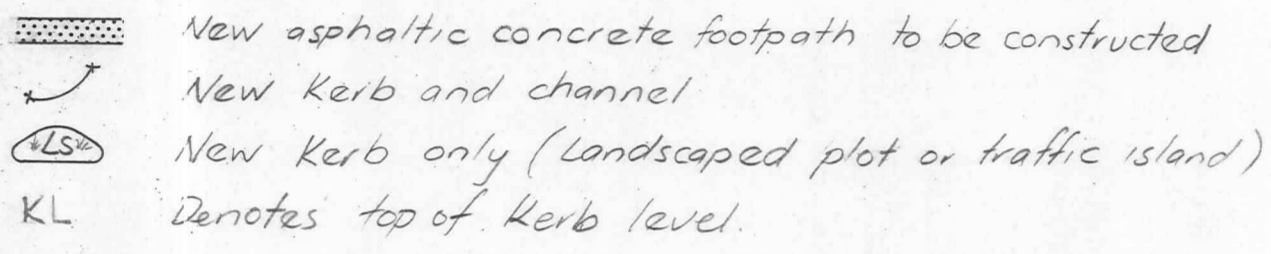 New asphaltic concrete footpath to be constructed
New Kerb and channel
LS New Kerb only (Landscaped plot or traffic island)
KL Denotes top of Kerb level.